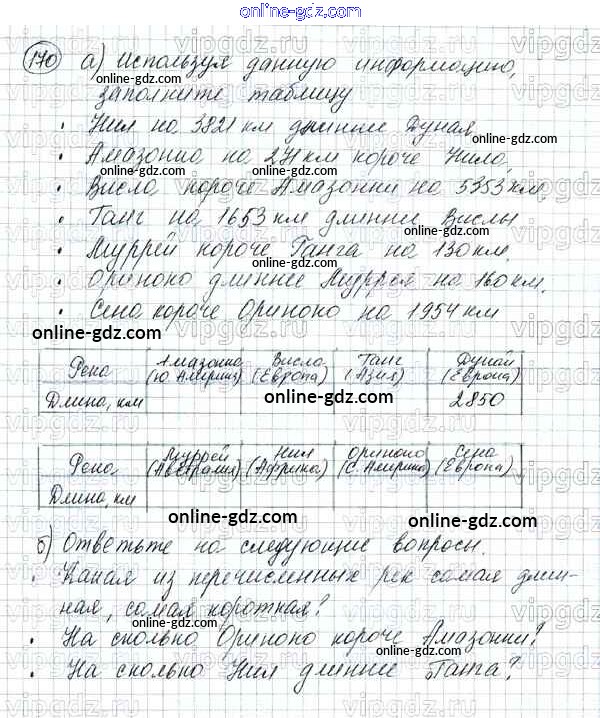 online-gdz.com
170 а) Используя данную информацию,
online-gdz.com
заполните таблицу
• Нил на 3821 км длиннее Дуная.
online-gdz.com
• Амазонка на 271 км короче Нила.
online-gdz.com
• Висла короче Амазонки на 5353 км.
• Ганг на 1653 км длиннее Вислы
online-gdz.com
• Муррей короче Ганга на 130 км.
online-gdz.com
• Ориноко длиннее Муррея на 160 км.
• Сена короче Ориноко на 1954 км
online-gdz.com
Река Амазонка (Ю. Америка) Висла (Европа) Ганг (Азия) Дунай (Европа)
Длина, км 2850
online-gdz.com
Река Муррей (Австралия) Нил (Африка) Ориноко (С. Америка) Сена (Европа)
Длина, км
online-gdz.com
online-gdz.com
б) Ответьте на следующие вопросы.
• Какая из перечисленных рек самая длин-
ная, самая короткая?
online-gdz.com
• На сколько Ориноко короче Амазонки?
online-gdz.com
• На сколько Нил длиннее Ганга?
online-gdz.com